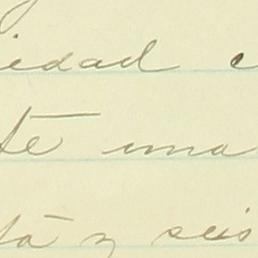 iedad c
te una
ta y seis